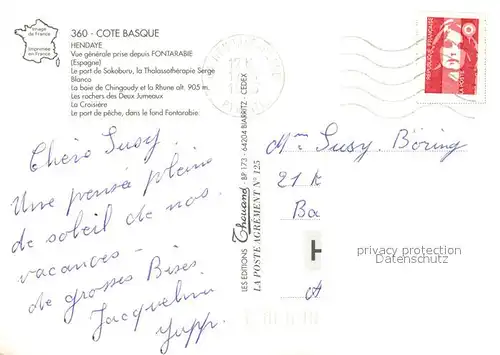 Image
de France
Imprimée
en France
360 - COTE BASQUE
HENDAYE
Vue générale prise depuis FONTARABIE
(Espagne)
Le port de Sokoburu, la Thalassothérapie Serge
Blanco
La baie de Chingoudy et la Rhune alt. 905 m.
Les rochers des Deux Jumeaux
La Croisière
Le port de pêche, dans le fond Fontarabie.
Chère Susy.
Une pensée pleine
de soleil de nos
vacances -
de grosses Bises.
Jacqueline
LES EDITIONS Thouand - BP 173 - 64204 BIARRITZ - CEDEX
LA POSTE AGRÉMENT N° 125
REPUBLIQUE FRANÇAISE
LA POSTE
Mme Susy. Böring
21 k
Ba
H
privacy protection
Datenschutz